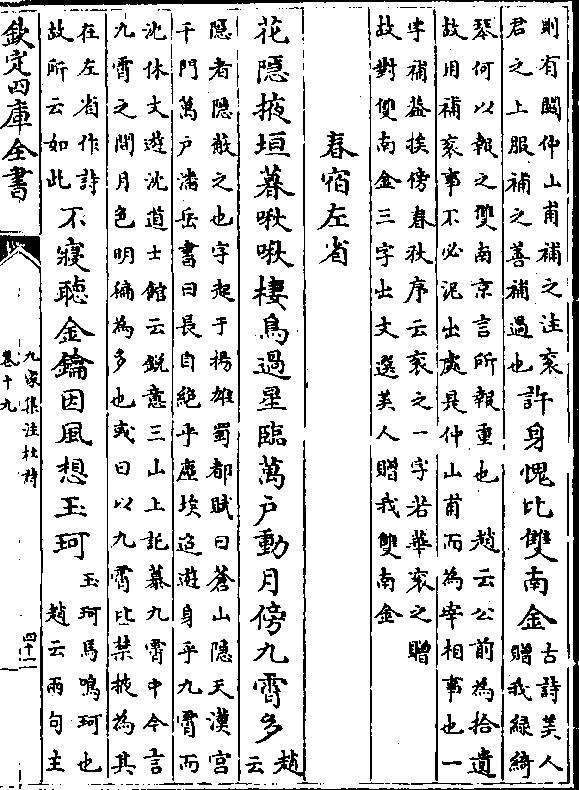 則有闕仲山甫補之注衮
君之上服補之善補過也
許身愧比雙南金
古詩美人
贈我綠綺
琴何以報之雙南京言所報重也　趙云公前為拾遺
故用補衮事不必泥出處是仲山甫而為宰相事也一
字補益挨傍春秋序云衮之一字若華衮之贈
故對雙南金三字出文選美人贈我雙南金
春宿左省
花隱掖垣暮啾啾棲鳥過星臨萬戶動月傍九霄多
趙
云
隱者隱蔽之也字起于揚雄蜀都賦曰蒼山隱天漢宮
千門萬戶潘岳書曰長自絕乎塵埃迢遊身乎九霄而
沈休文遊沈道士館云銳意三山上記慕九霄中今言
九霄之間月色明徧為多也或曰以九霄比禁掖為其
在左省作詩
故所云如此
不寢聽金鑰因風想玉珂
玉珂馬鳴珂也
趙云兩句主
欽定四庫全書
九家集注杜詩
卷十九
四十二